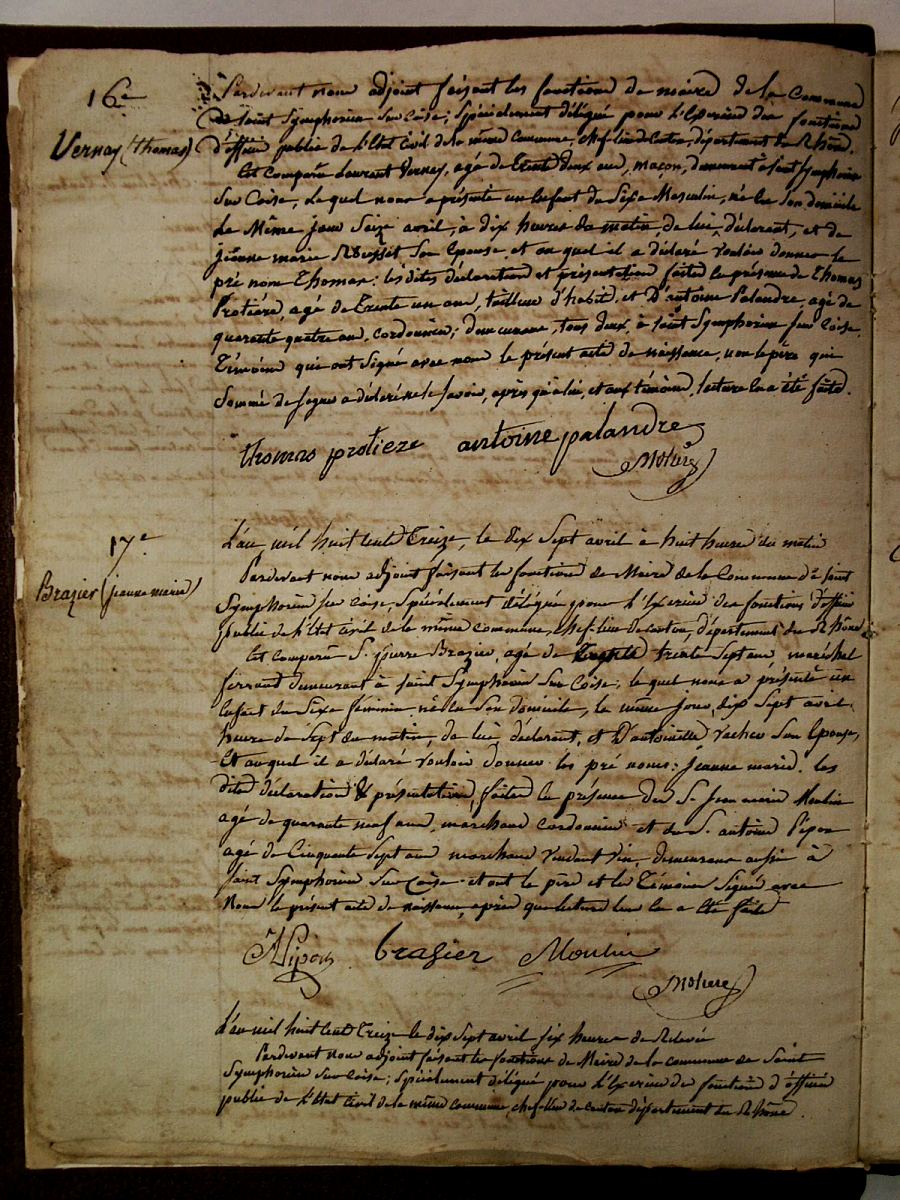 16e
Vernay (thomas)
Pardevant nous adjoint faisant les fonctions de maire de la Commune
de saint Symphorien sur Coise; Spécialement délégué pour l'Exercice des fonctions
d'officier public de l'Etat Civil de la même commune, chef-lieu de Canton, département du Rhône.
Est comparu Laurent Vernay, agé de trente deux ans, maçon, demeurant à saint symphorien
sur Coise, Lequel nous a présenté un Enfant du Sexe Masculin, né En Son domicile
Le Même jour Seize avril, à dix heures du matin, de lui, déclarant, et de
jeanne marie Son Epouse, et au quel il a déclaré vouloir donner le
pré nom Thomas: les dites déclaration et présentation faites En présence de Thomas
Protière, agé de Trente un ans, tailleur d'habits, et D'antoine Palandre, agé de
quarante quatre ans, cordonnier; demeurans, tous deux, à saint Symphorien sur Coise.
Témoins qui ont Signé avec nous le présent acte de naissance, non le père qui
Sommé de Signer a déclaré ne le Savoir, après qu'à lui, et aux témoins, lecture En a été faite.
thomas protieze antoine palandre
17e
Brazier (jeanne marie)
L'an mil huit Cent Treize, le dix Sept avril à huit heures du matin
Pardevant nous adjoint faisant les fonctions de Maire de la Commune de Saint
Symphorien sur Coise, Spécialement délégué pour l'Exercice des fonctions d'officier
public de l'Etat Civil de la même commune, chef-lieu de canton, département du Rhône
Est comparu S. pierre Brazier, agé de trente Sept ans, maréchal
ferrant demeurant à saint Symphorien sur Coise; lequel nous a présenté un
Enfant du Sexe féminin né En Son domicile, le même jour, dix Sept avril
heure de Sept du matin, de lui, déclarant, et D'antoinette Vacher Son Epouse,
Et auquel il a déclaré vouloir donner les pré noms: jeanne marie. les
dites déclaration & présentation, faites En présence du S. Jean marie Moulin
agé de quarante neuf ans, marchand cordonnier et du S. antoine Pipon
agé de Cinquante Sept ans marchand vendant vin, demeurans aussi à
Saint Symphorien Sur Coise et ont le père et les Témoins Signé avec
Nous le présent acte de naissance, après que lecture leur En a été faite
APipon brazier Moulin
L'an mil huit Cent Treize le dix Sept avril Six heures de Relevée
Pardevant Nous adjoint faisant les fonctions de Maire de la commune de Saint
Symphorien Sur Coise; Spécialement délégué pour l'Exercice des fonctions d'officier
public de l'Etat Civil de la même Commune, chef-lieu de canton département du Rhône.